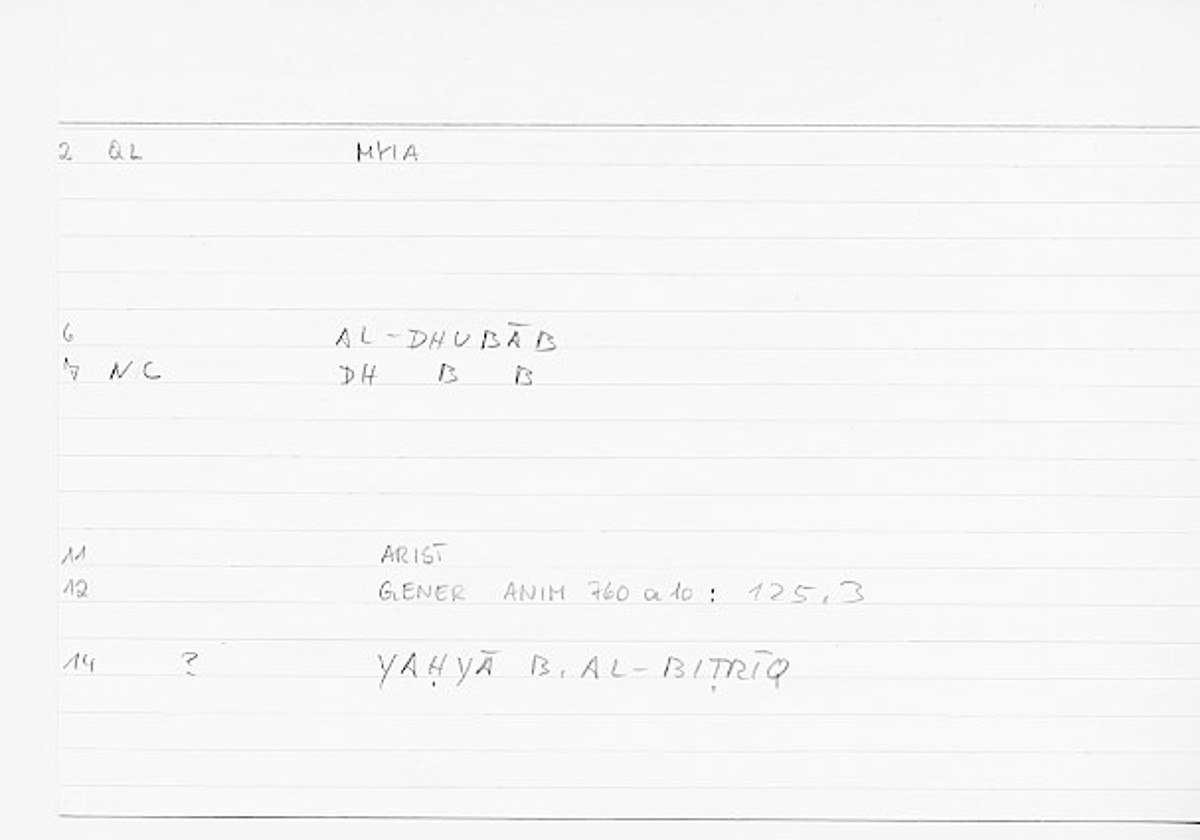 2 QL MYIA
6 AL-DHUBĀB
7 NC DH B B
11 ARIST
12 GENER ANIM 760 a 10 : 125.3
14 ? YAḤYĀ B. AL-BIṬRĪQ